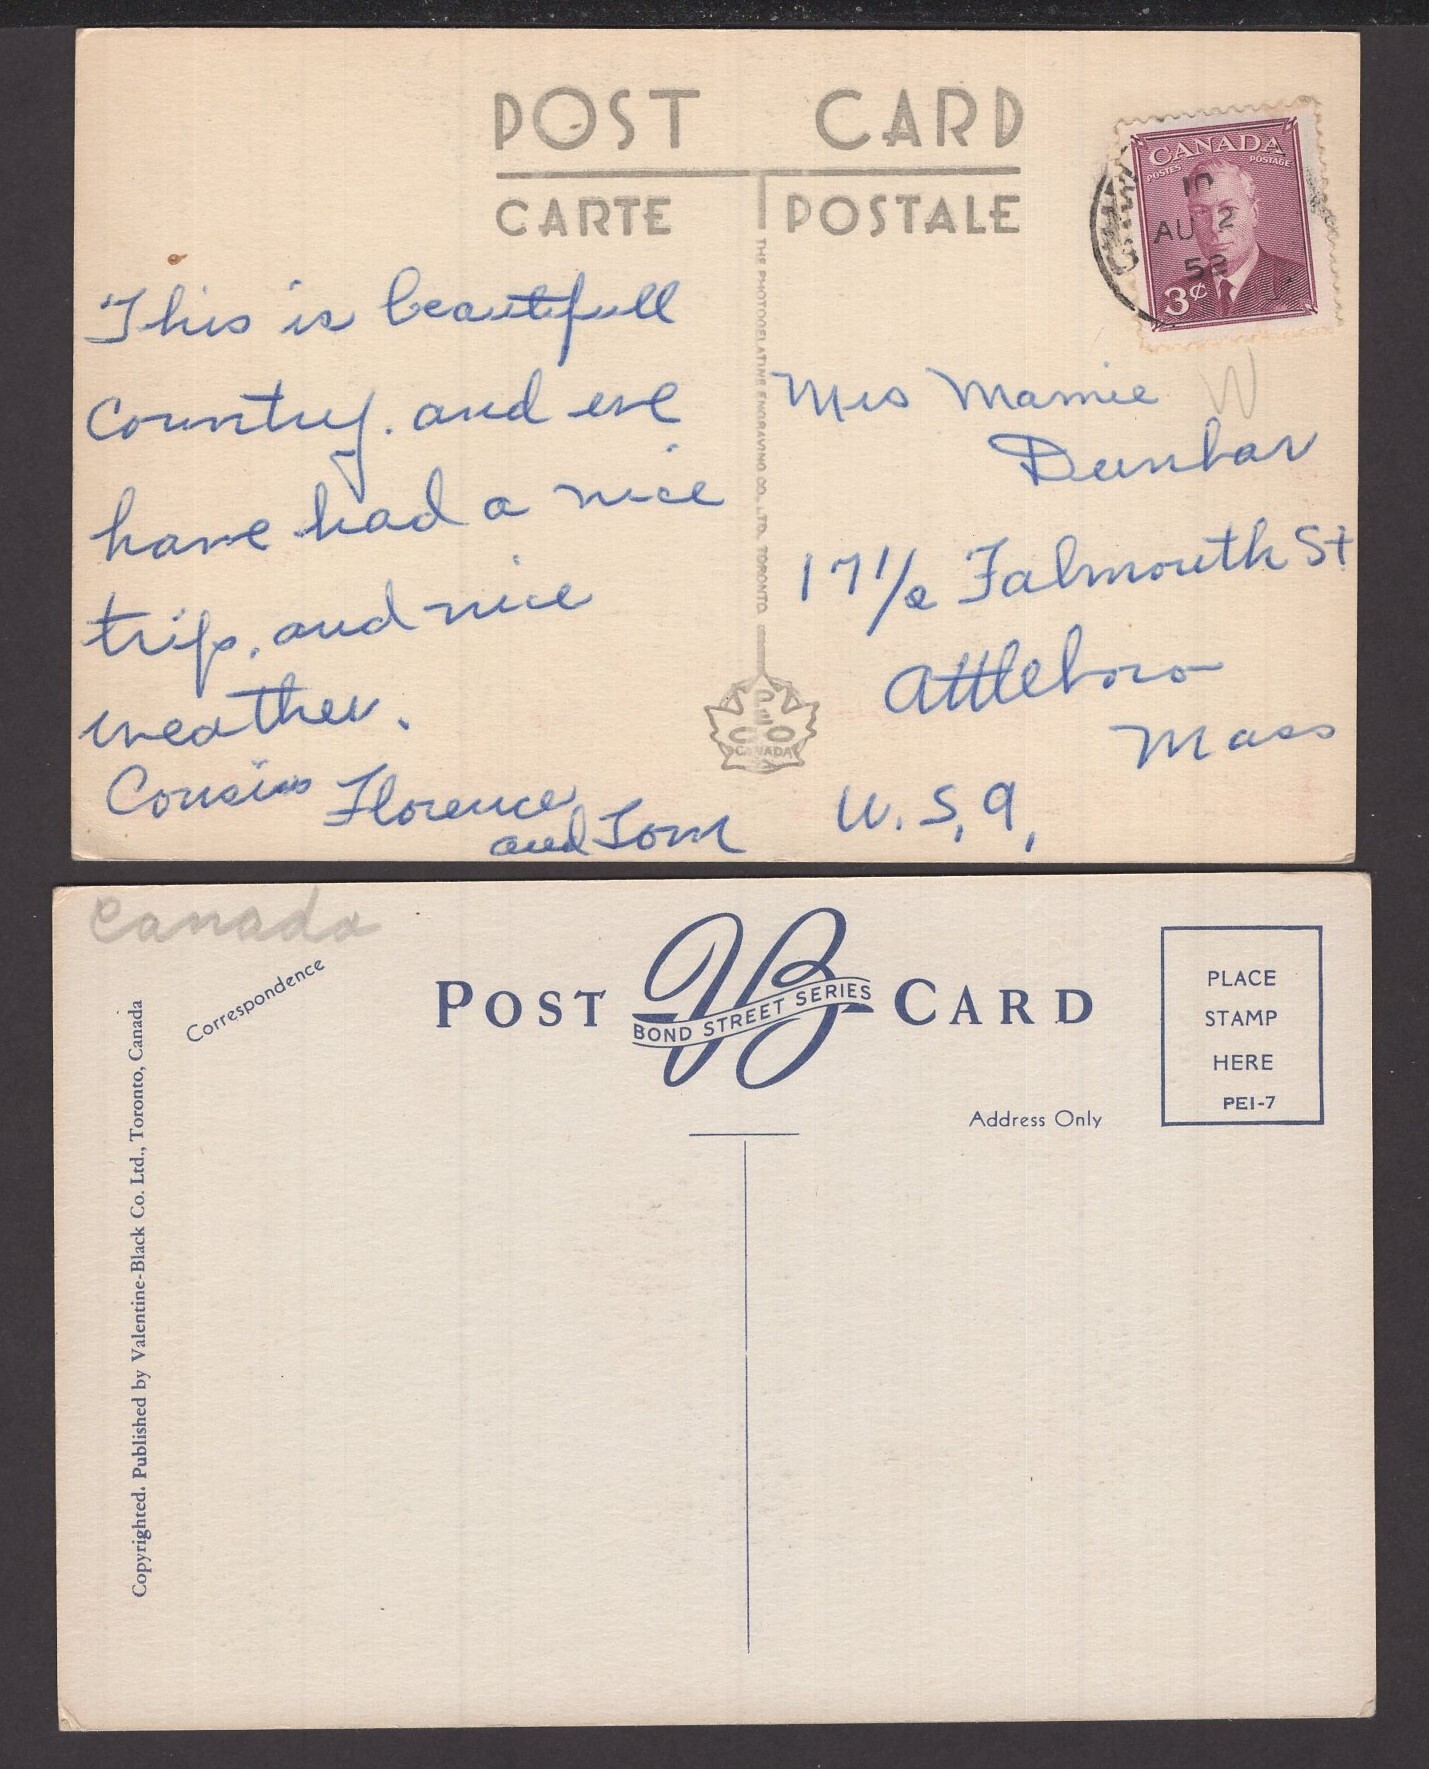 POST CARD
CARTE POSTALE
CANADA
POSTES POSTAGE
10
AU 2
52
3¢
THE PHOTOGELATINE ENGRAVING CO., LTD. TORONTO
This is beautifull
Country. and we
have had a nice
trip, and nice
weather.
Cousins Florence
and Tom
Mrs Mamie
Dunbar
17 1/2 Falmouth St
Attleboro
Mass
U.S.A.
W
PECO
CANADA
Canada
Correspondence
POST CARD
VB
BOND STREET SERIES
PLACE
STAMP
HERE
PEI-7
Address Only
Copyrighted. Published by Valentine-Black Co. Ltd., Toronto, Canada